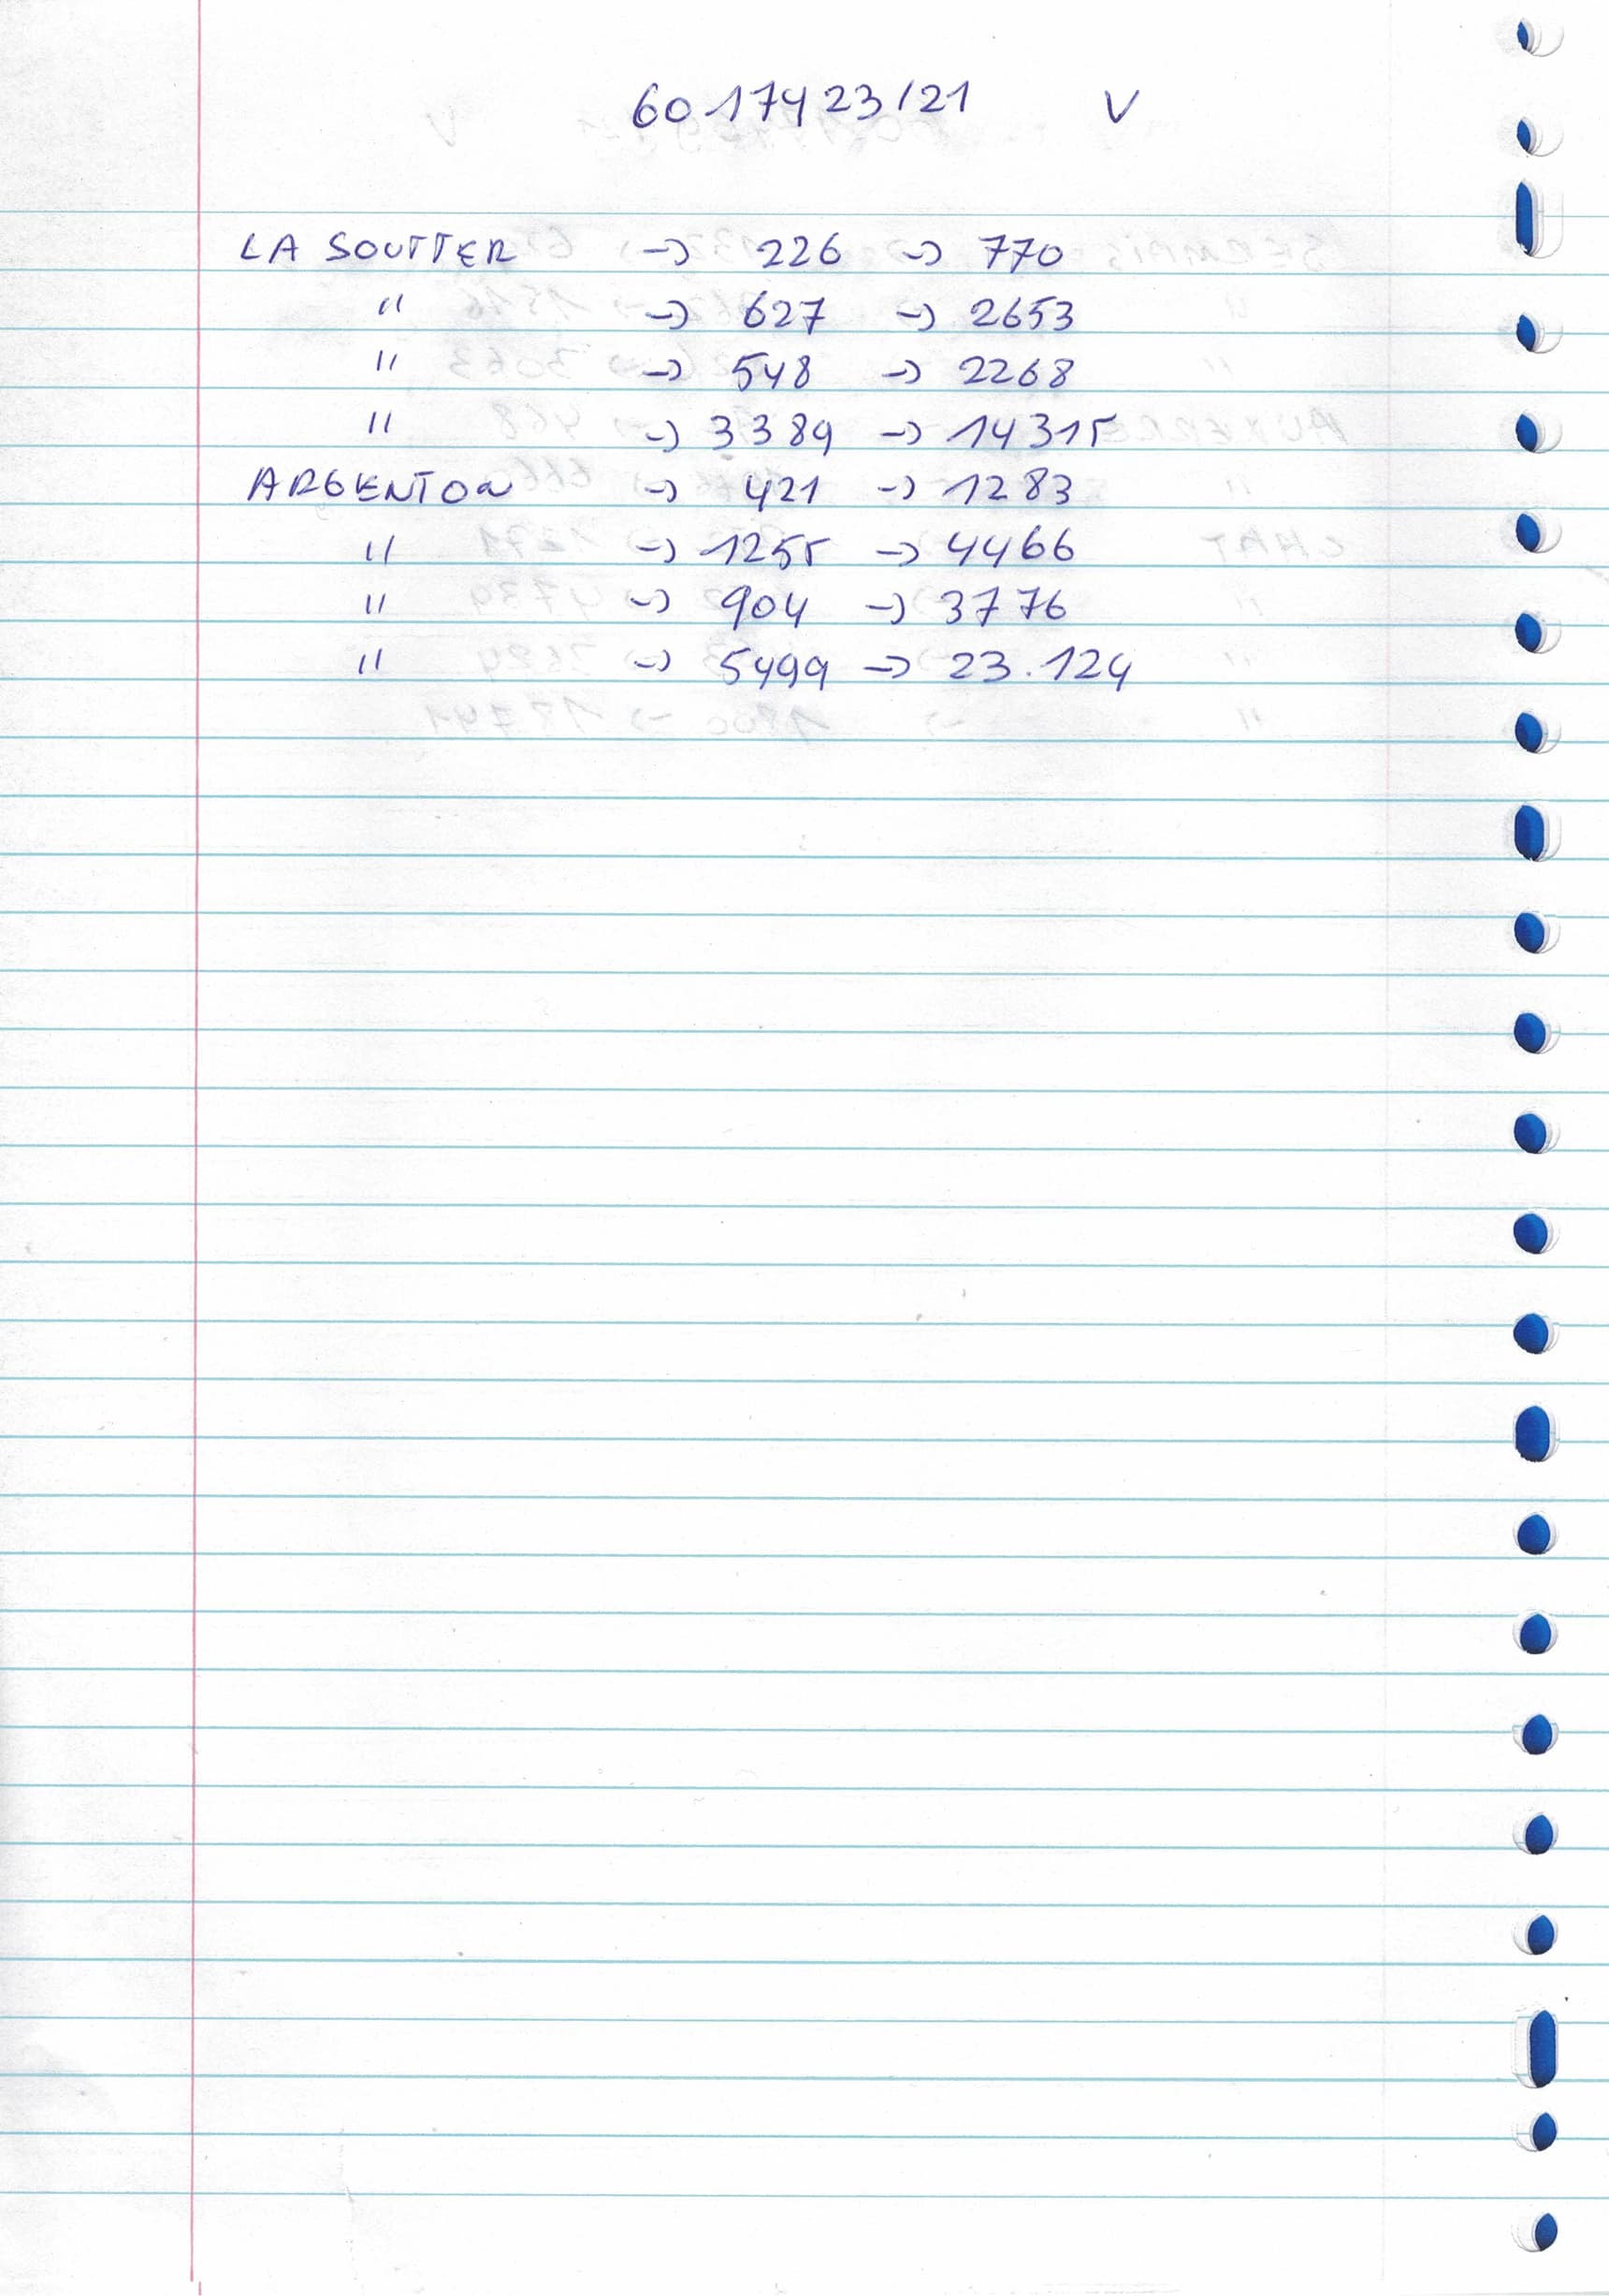 6017423/21 V
LA SOUTTER -> 226 -> 770
" -> 627 -> 2653
" -> 548 -> 2268
" -> 3389 -> 14315
ARGENTON -> 421 -> 1283
" -> 1255 -> 4466
" -> 904 -> 3776
" -> 5499 -> 23.124